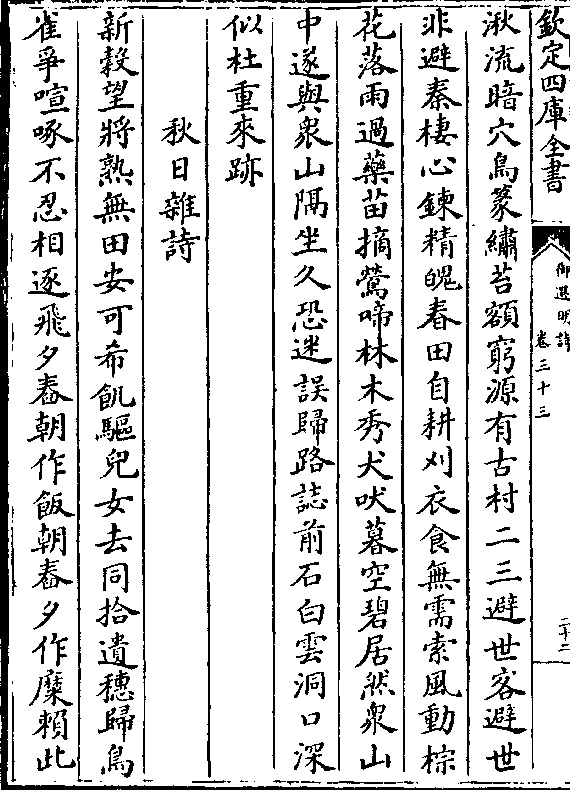 欽定四庫全書
御選明詩
卷三十三
二十二
湫流暗穴鳥篆繡苔額窮源有古村二三避世客避世
非避秦棲心鍊精魄春田自耕刈衣食無需索風動棕
花落雨過藥苗摘鶯啼林木秀犬吠暮空碧居然衆山
中遂與衆山隔坐久恐迷誤歸路誌前石白雲洞口深
似杜重來跡
秋日雜詩
新穀望將熟無田安可希飢驅兒女去同拾遺穗歸鳥
雀爭喧啄不忍相逐飛夕舂朝作飯朝舂夕作糜賴此